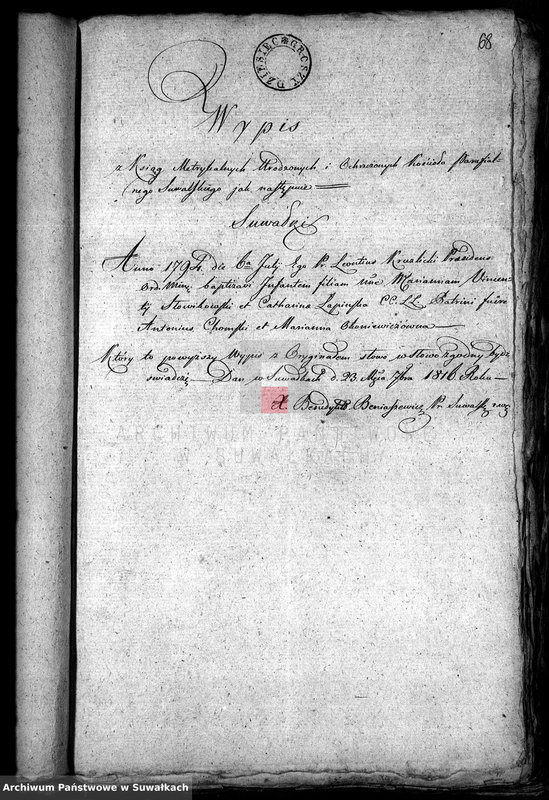 68
DZIESIĘC GROSZY
Wypis
z Ksiąg Metrykalnych Urodzonych i Ochrzczonych Kościoła Parafial-
nego Suwalskiego jak następuie
Suwałki
Anno 1794. die 6ta July Ego Pr. Leontius Præsidens
Ord. Min. baptizavi Infantem filiam nõe Mariannam Vincen-
ty Słowikowski et Catharina Łapinska CC. LL. Patrini fuère
Antonius Chomski et Marianna Okoniewiczowna
Który to powyższy Wypis z Oryginałem słowo w słowo zgodny bydź
świadczę Dan w Suwałkach d. 23 Mca 7bra 1816 Roku
X. Benedykt Beniaszewicz Pr. Suwalsk
Archiwum Państwowe w Suwałkach